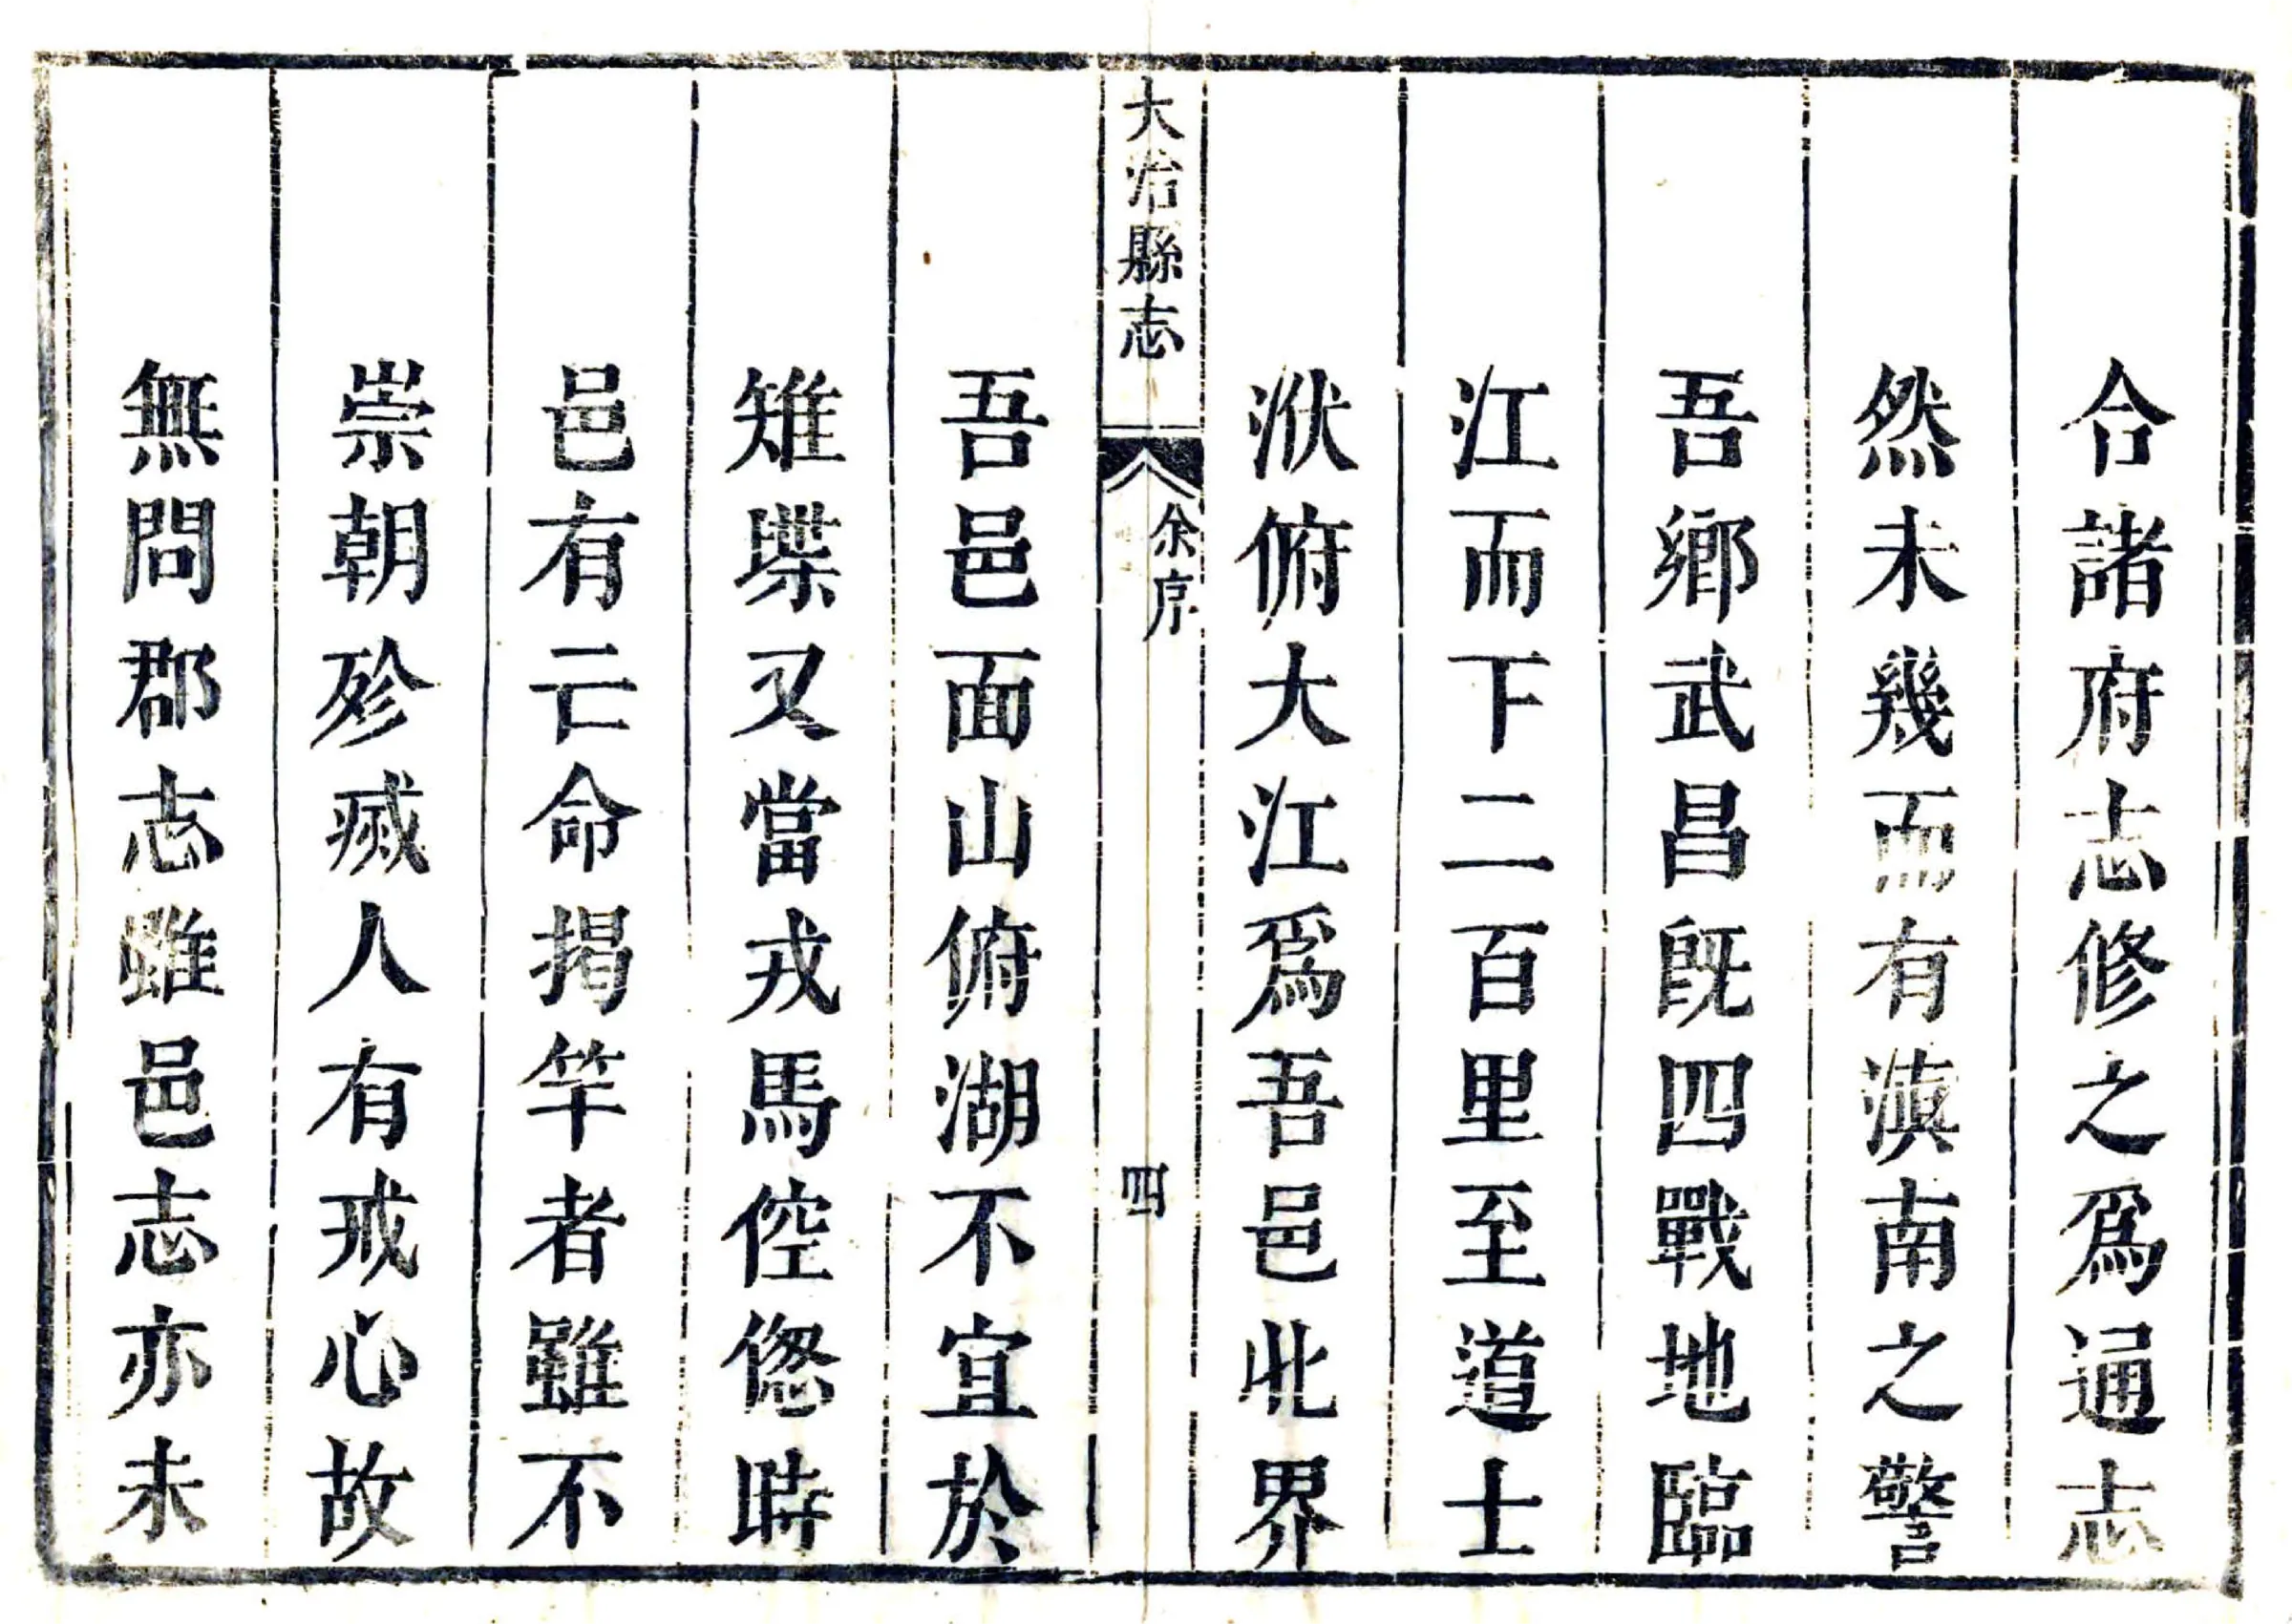 合諸府志修之爲通志
然未幾而有滇南之警
吾鄉武昌既四戰地臨
江而下二百里至道士
洑俯大江爲吾邑北界
大冶縣志
余序
四
吾邑面山俯湖不宜於
雉堞又當戎馬倥傯時
邑有亡命揭竿者雖不
崇朝殄滅人有戒心故
無問郡志雖邑志亦未